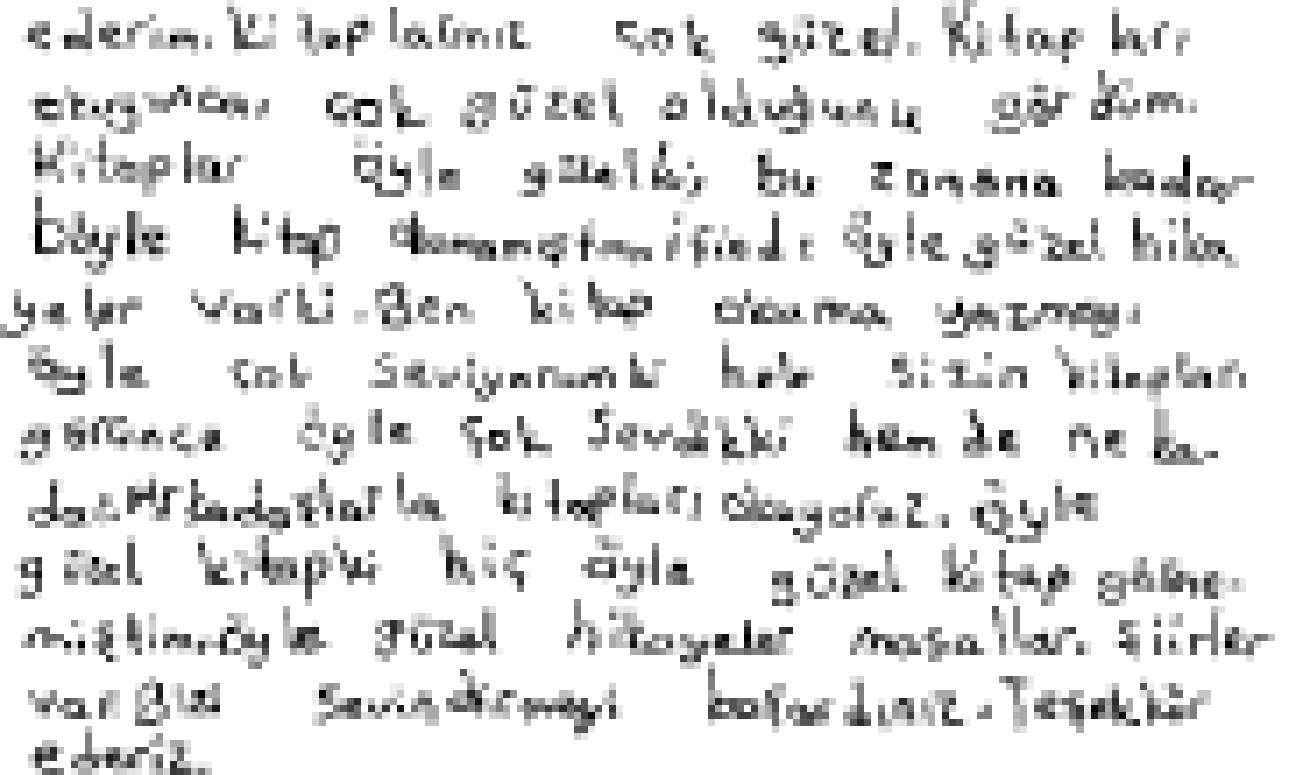 ederim. Kitaplarınız çok güzel. Kitapları
okuyunca, çok güzel olduğunu gördüm.
Kitaplar öyle güzelki, bu zamana kadar
böyle kitap okumamıştım içinde öyle güzel hika
yeler varki. Ben kitap okuma yazmayı
öyle çok seviyorumki hele sizin kitapları
görünce öyle çok sevdikki hem de ne ka-
dar. Arkadaşlarla kitapları okuyoruz. Öyle
güzel kitapki hiç öyle güzel kitap görme-
miştim. öyle güzel hikayeler masallar. şiirler
var Bizi sevindirmeyi başardınız. Teşekkür
ederiz.